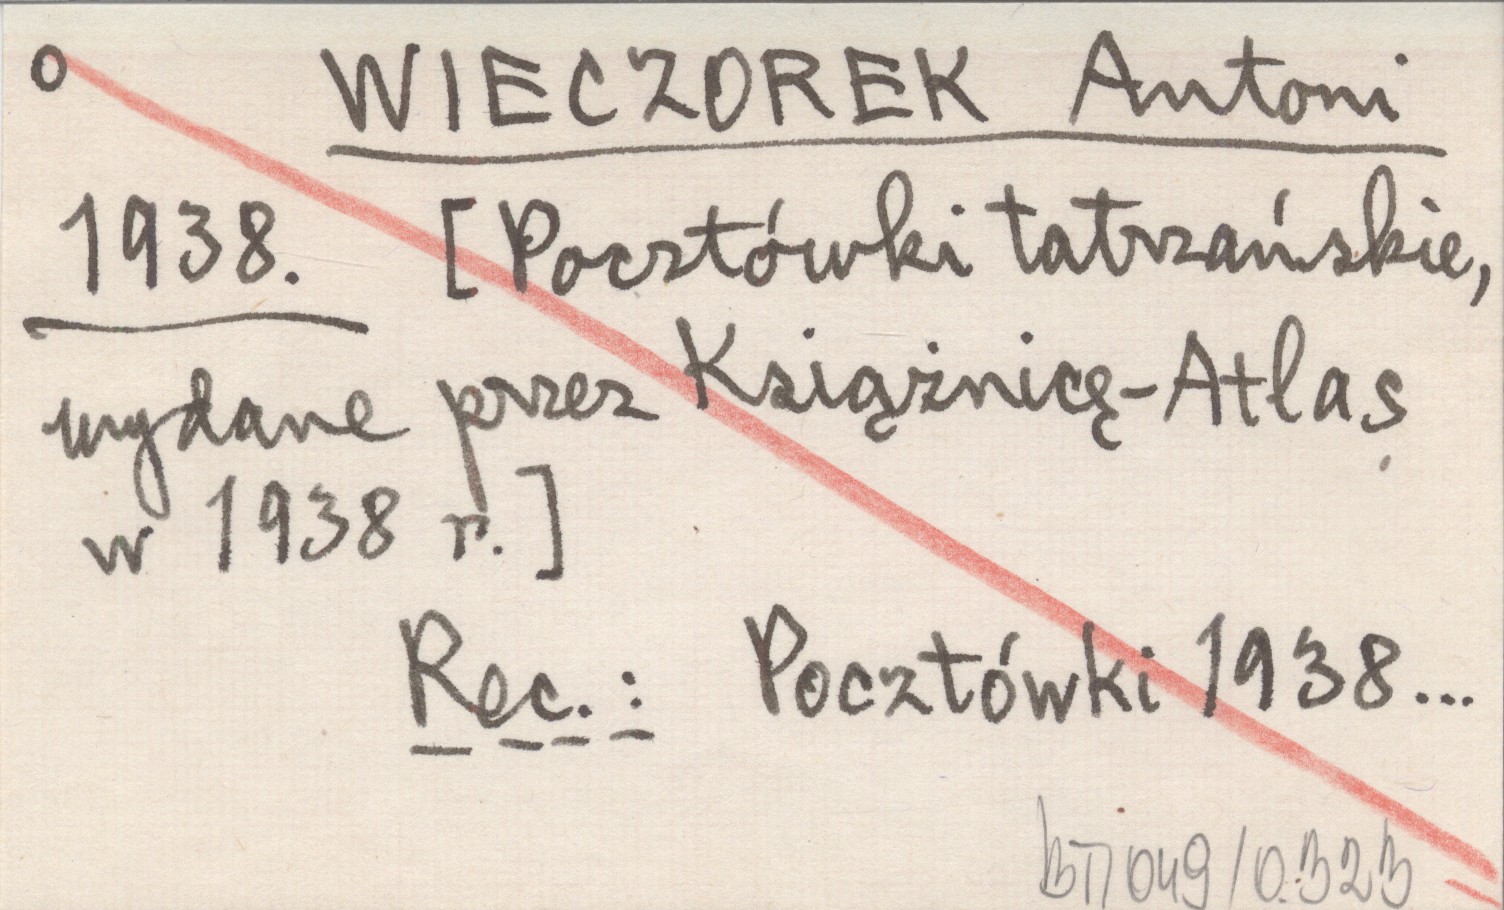 o WIECZOREK Antoni
1938. [Pocztówki tatrzańskie,
wydane przez Książnicę-Atlas
w 1938 r.]
Rec.: Pocztówki 1938...
049/0.323